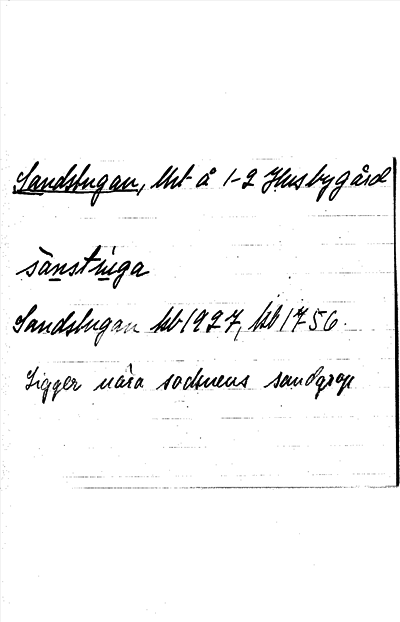 Sandstugan, lht å 1-2 Husbygård
sànstúga
Sandstugan hb 1927, hb 1756.
Ligger nära socknens sandgrop